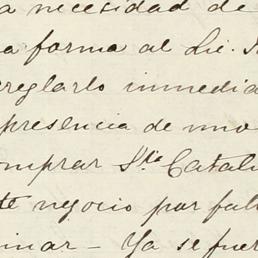 a necesidad de
a forma al Lic.
rreglarlo inmedia
presencia de uno
omprar Sta Catali
te negocio por falt
inar – Ya se fuer